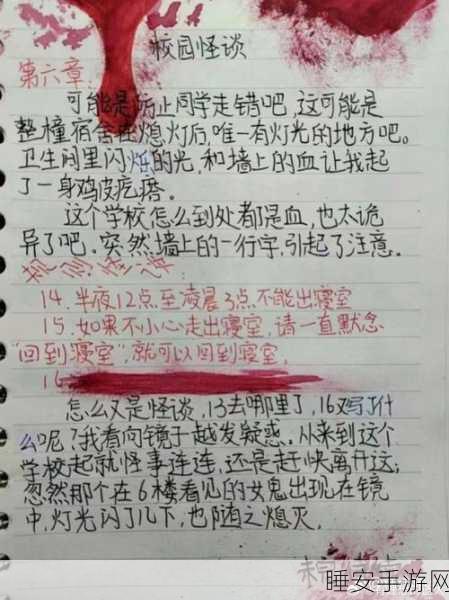 校园怪谈
第六章:
可能是防止同学走错吧,这可能是
整橦宿舍在熄灯后,唯一有灯光的地方吧。
卫生间里闪烁的光,和墙上的血让我起
了一身鸡皮疙瘩。
这个学校怎么到处都是血,也太诡
异了吧。突然墙上的一行字,引起了注意。
14.半夜12点至凌晨3点不能出寝室
15.如果不小心走出寝室,请一直默念
"回到寝室",就可以回到寝室.
16
怎么又是怪谈,13去哪里了,16又写了什
么呢?我看向镜子越发疑惑。从来到这个
学校起就怪事连连,还是赶快离开这;
忽然那个在6楼看见的女鬼出现在镜
中,灯光闪了几下,也随之熄灭.
睡安手游网